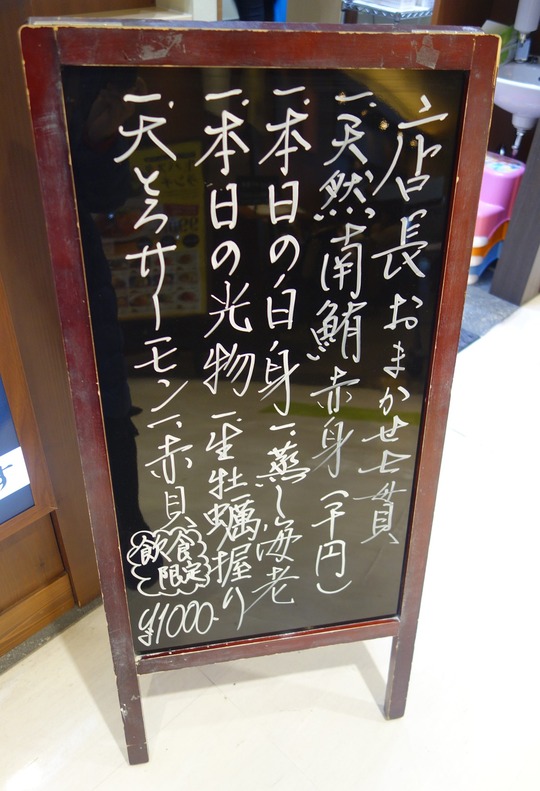 店長おまかせ七貫
一、天然南鮪赤身(千円)
一、本日の白身一、蒸し海老
一、本日の光物一、生牡蠣握り
一、大とろサーモン一、赤貝
飲食
限定
¥1000-
す